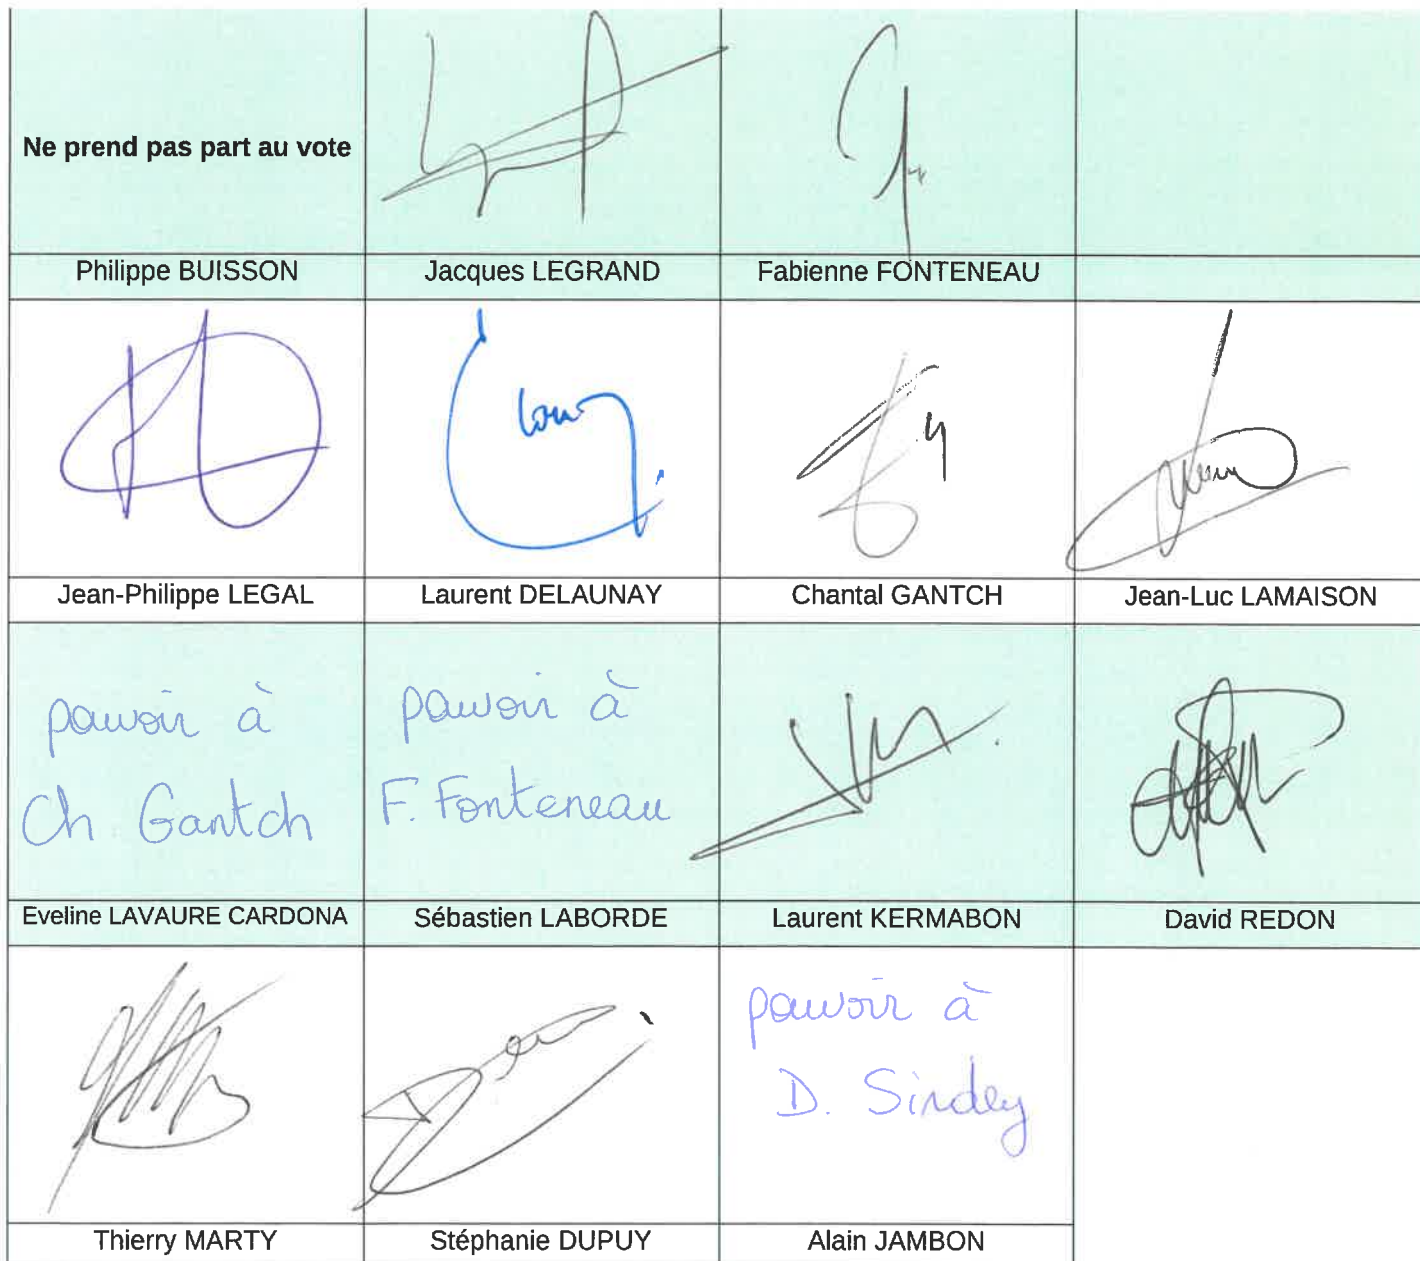 Ne prend pas part au vote
Philippe BUISSON
Jacques LEGRAND
Fabienne FONTENEAU
Jean-Philippe LEGAL
Laurent DELAUNAY
Chantal GANTCH
Jean-Luc LAMAISON
pouvoir à
Ch Gantch
pouvoir à
F. Fonteneau
Eveline LAVAURE CARDONA
Sébastien LABORDE
Laurent KERMABON
David REDON
pouvoir à
D. Sirdey
Thierry MARTY
Stéphanie DUPUY
Alain JAMBON